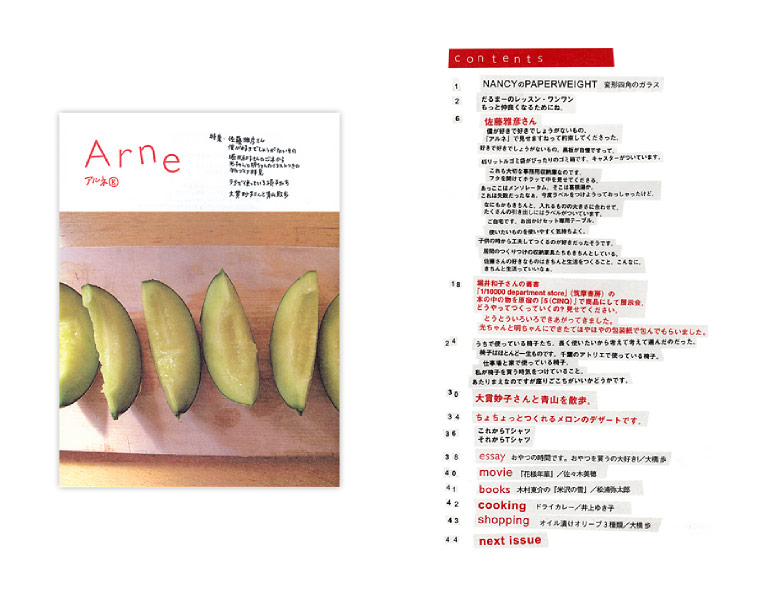 Arne
アルネ⑧
特集・佐藤雅彦さん
僕が好きで好きでしょうがないもの
大貫妙子さんと青山散歩
contents
1 NANCYのPAPERWEIGHT 変形四角のガラス
2 だるまーのレッスン・ワンワン
もっと仲良くなるために。
6 佐藤雅彦さん
僕が好きで好きでしょうがないもの。
「アルネ」で見せますねって約束してくださった。
好きで好きでしょうがないもの。黒板が自慢ですって。
45リットルゴミ袋がぴったりのゴミ箱です。キャスターがついています。
これも大切な事務用収納庫なのです。
フタを開けてチラッて中を見せてくださる。
あっここはメンソレータム。そこは葛根湯か。
これは失敗だったなぁ。今度ラベルをつけようっておっしゃったけど。
なにもかもきちんと、入れるものの大きさに合わせて。
たくさんの引き出しにはラベルがついています。
ご自宅です。お出かけセット専用テーブル。
使いたいものを使いやすく気持ちよく。
子供の時から工夫してつくるのが好きだったそうです。
居間のつくりつけの収納家具たちもきちんとしている。
佐藤さんの好きなものはきちんと生活をつくること。こんなに、
きちんと生活っていいなぁ。
18 堀井和子さんの著書
「1/10000 department store」（筑摩書房）の
本の中の物を原宿の「5（CINQ）」で商品にして展示会。
どうやってつくっていくの？見せてください。
とうとういろいろできあがってきました。
光ちゃんと明ちゃんにできたてほやほやの包装紙で包んでもらいました。
24 うちで使っている椅子たち。長く使いたいから考えて考えて選んだのだった。
椅子はほとんど一生ものです。千葉のアトリエで使っている椅子。
仕事場と家で使っている椅子。
私が椅子を買う時気をつけていること。
あたりまえなのですが座りごこちがいいかどうかです。
30 大貫妙子さんと青山を散歩。
34 ちょちょっとつくれるメロンのデザートです。
36 これからTシャツ
それからTシャツ
38 essay おやつの時間です。おやつを買うの大好き!／大橋 歩
40 movie 『花様年華』／佐々木美穂
41 books 木村東介の『米沢の雪』／松浦弥太郎
42 cooking ドライカレー／井上ゆき子
43 shopping オイル漬けオリーブ3種類／大橋 歩
44 next issue